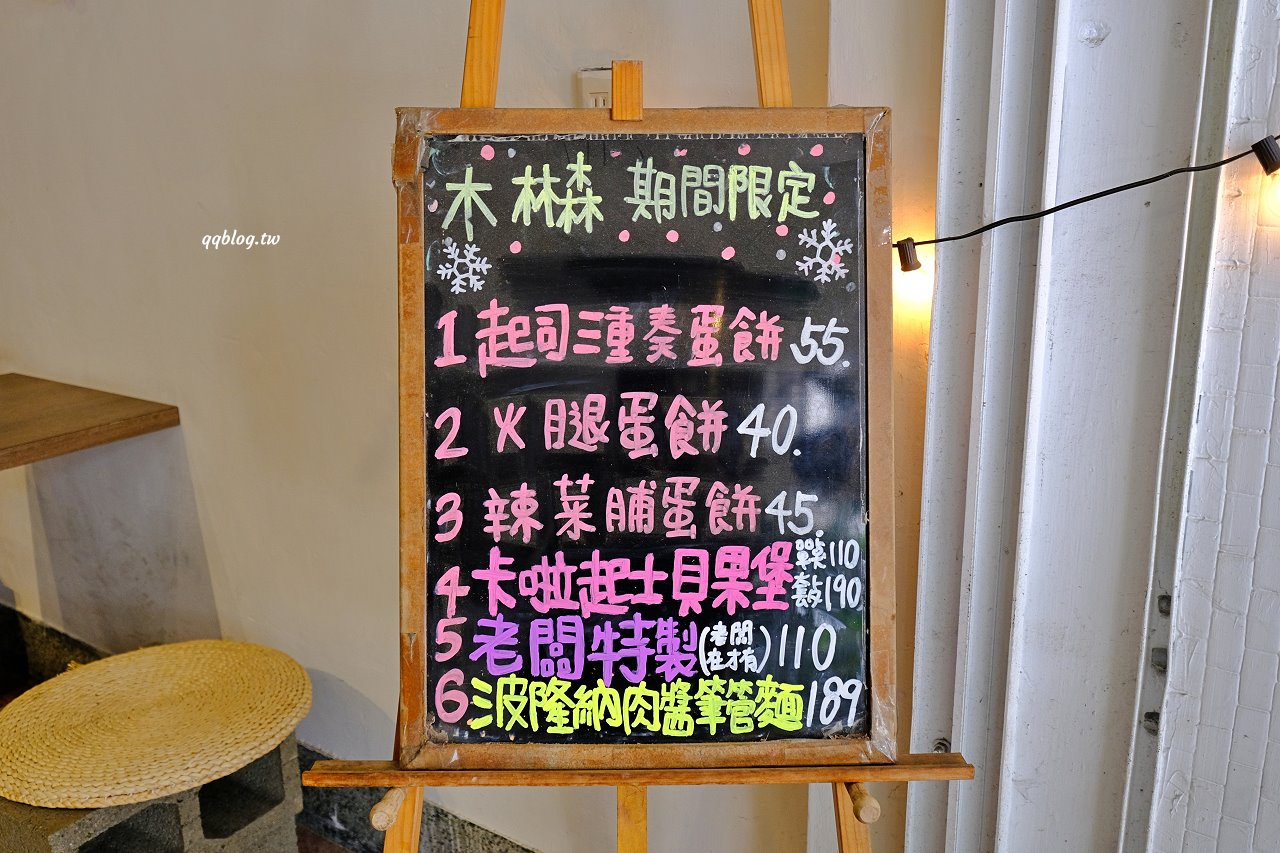 木 林森 期間限定
qqblog.tw
1 起司三重奏蛋餅 55.
2 火腿蛋餅 40.
3 辣菜脯蛋餅 45.
4 卡啦起士貝果堡 單點110 套餐190
5 老闆特製(老闆在才有) 110
6 波隆納肉醬筆管麵 189